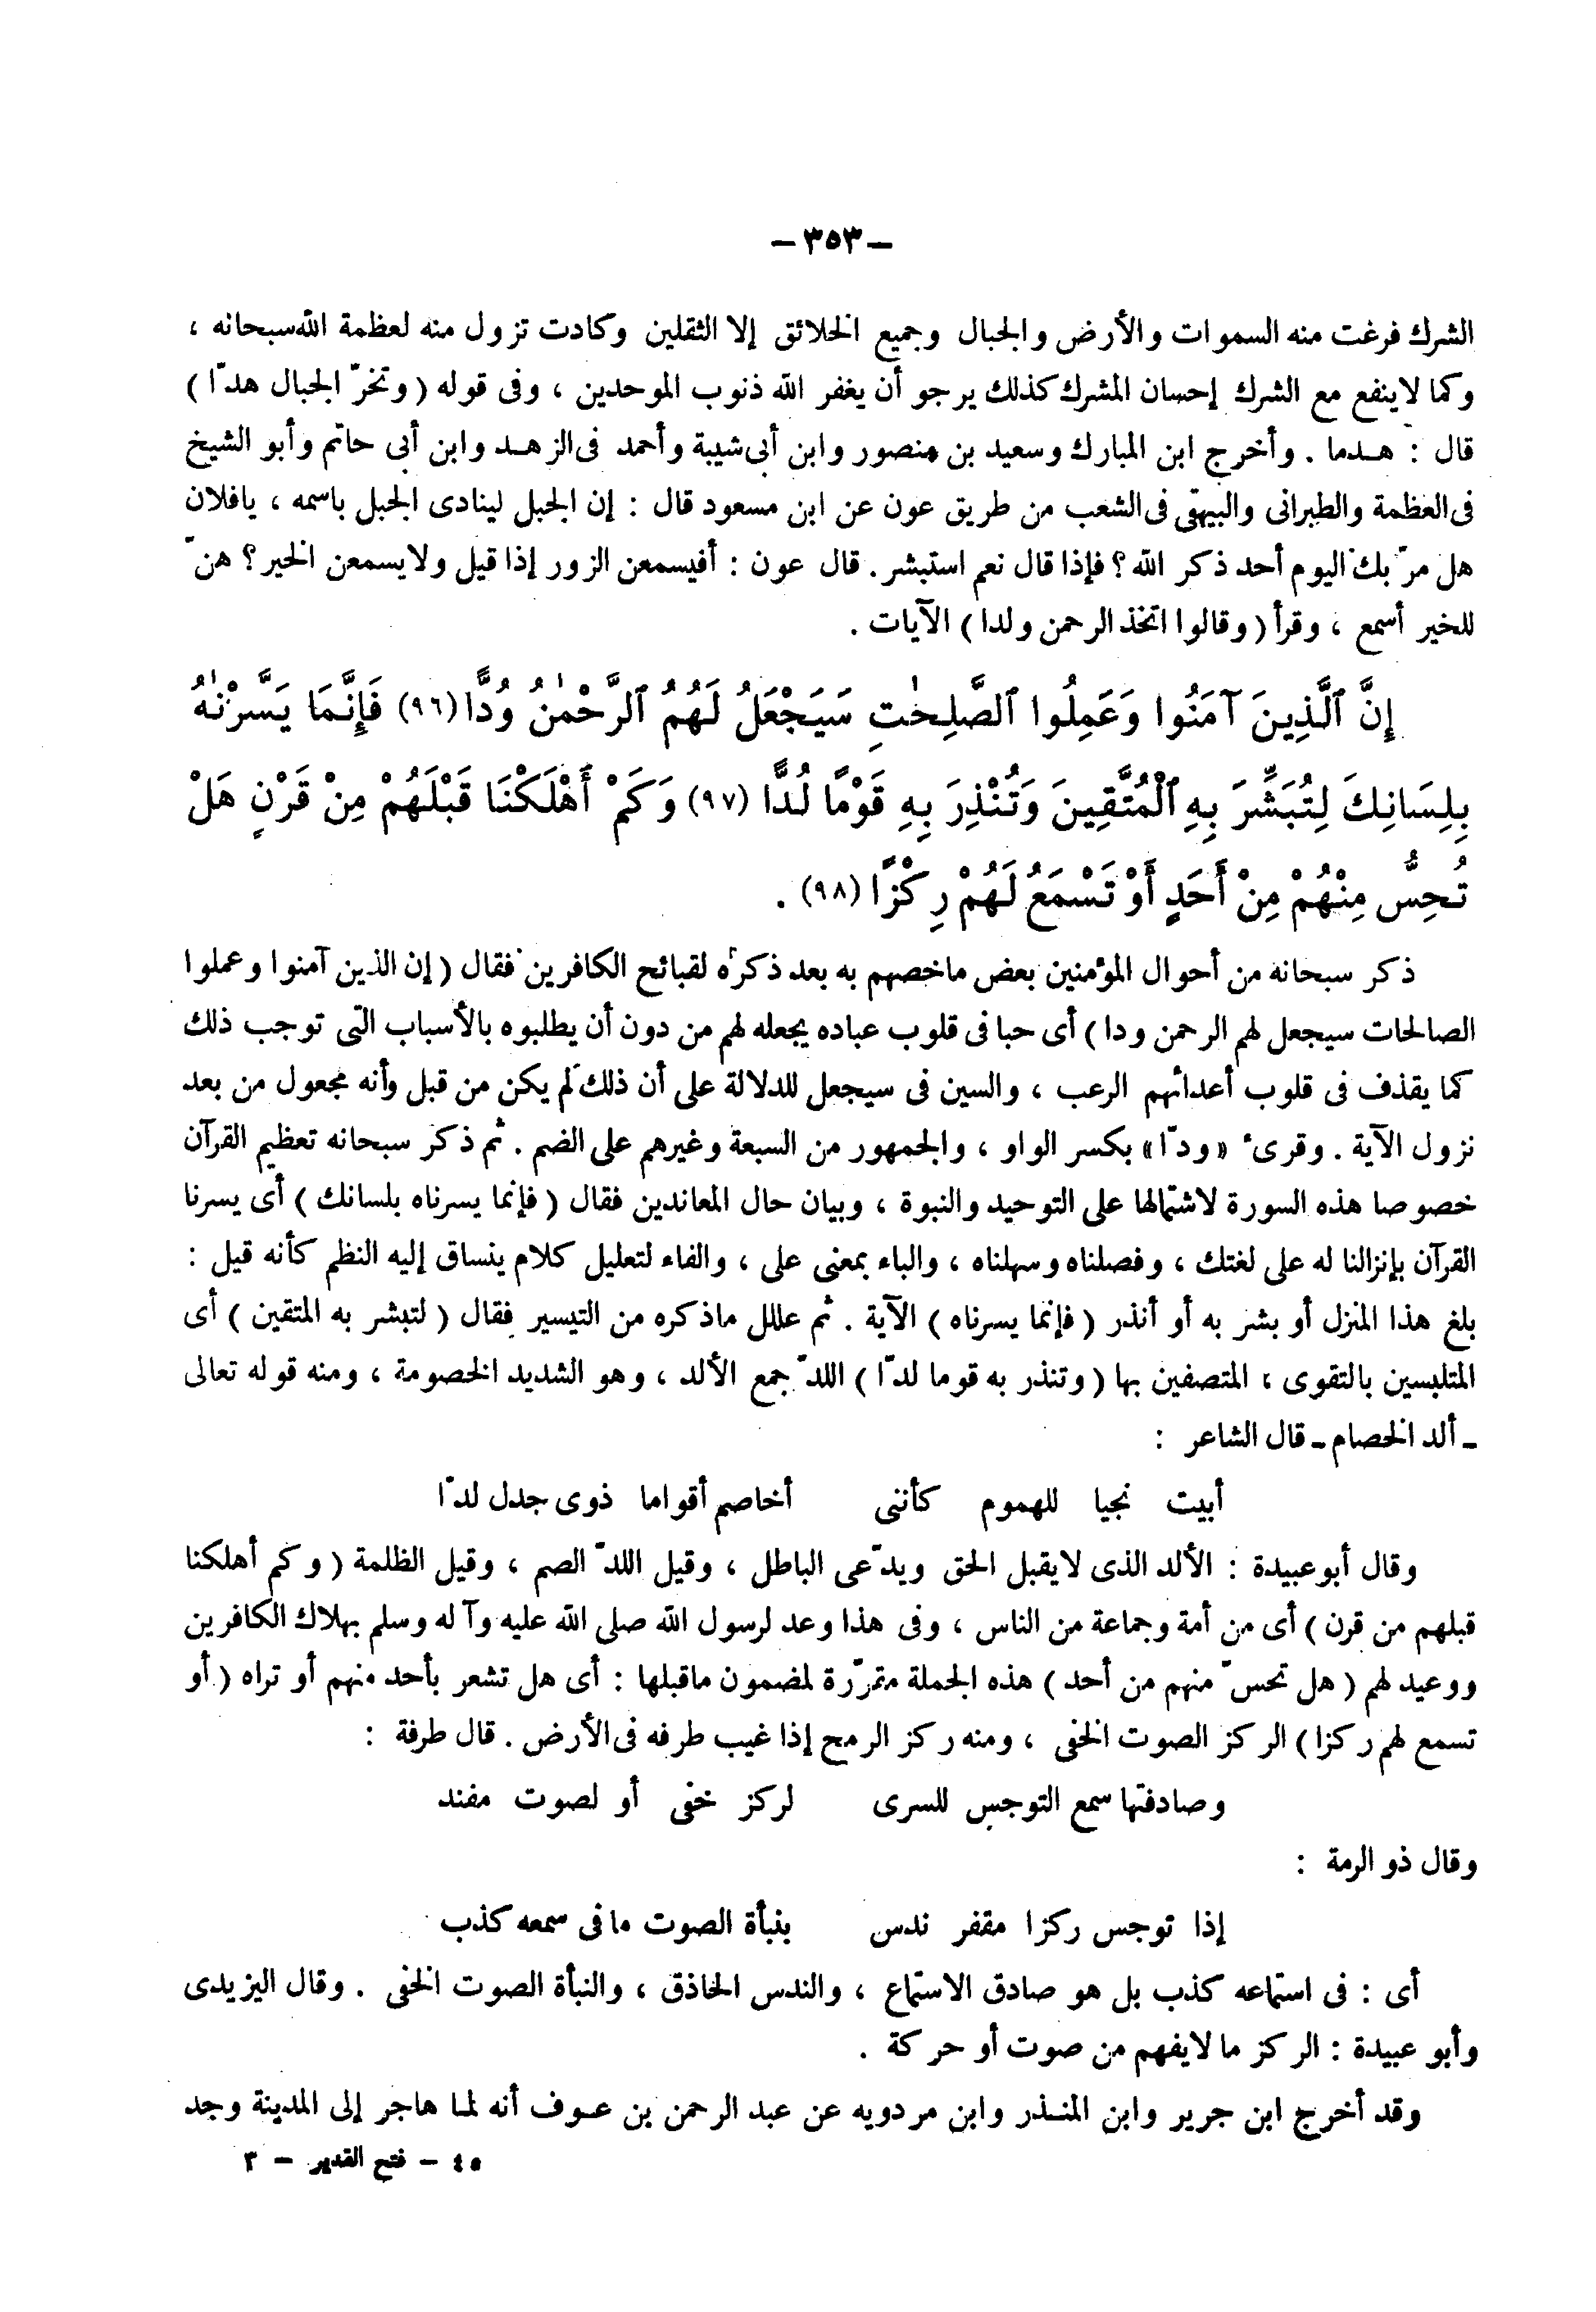 – ٣٥٣ –
الشرك فرغت منه السموات والأرض والجبال وجميع الخلائق إلا الثقلين وكادت تزول منه لعظمة الله سبحانه ،
وكما لاينفع مع الشرك إحسان المشرك كذلك يرجو أن يغفر الله ذنوب الموحدين ، وفى قوله ( وتخرّ الجبال هدّا )
قال : هـدما . وأخرج ابن المبارك وسعيد بن منصور وابن أبى شيبة وأحمد فى الزهـد وابن أبى حاتم وأبو الشيخ
فى العظمة والطبرانى والبيهقى فى الشعب من طريق عون عن ابن مسعود قال : إن الجبل لينادى الجبل باسمه ، يافلان
هل مرّ بك اليوم أحد ذكر الله ؟ فإذا قال نعم استبشر . قال عون : أفيسمعن الزور إذا قيل ولايسمعن الخير ؟ هنّ
للخير أسمع ، وقرأ ( وقالوا اتخذ الرحمن ولدا ) الآيات .
إِنَّ ٱلَّذِينَ آمَنُوا وَعَمِلُوا ٱلصَّٰلِحَٰتِ سَيَجْعَلُ لَهُمُ ٱلرَّحْمٰنُ وُدًّا (٩٦) فَإِنَّمَا يَسَّرْنَٰهُ
بِلِسَانِكَ لِتُبَشِّرَ بِهِ ٱلْمُتَّقِينَ وَتُنْذِرَ بِهِ قَوْمًا لُدًّا (٩٧) وَكَمْ أَهْلَكْنَا قَبْلَهُمْ مِنْ قَرْنٍ هَلْ
تُحِسُّ مِنْهُمْ مِنْ أَحَدٍ أَوْ تَسْمَعُ لَهُمْ رِكْزًا (٩٨) .
ذكر سبحانه من أحوال المؤمنين بعض ماخصهم به بعد ذكره لقبائح الكافرين فقال ( إن الذين آمنوا وعملوا
الصالحات سيجعل لهم الرحمن ودا ) أى حبا فى قلوب عباده يجعله لهم من دون أن يطلبوه بالأسباب التى توجب ذلك
كما يقذف فى قلوب أعدائهم الرعب ، والسين فى سيجعل للدلالة على أن ذلك لم يكن من قبل وأنه مجعول من بعد
نزول الآية . وقرىء « ودّا » بكسر الواو ، والجمهور من السبعة وغيرهم على الضم . ثم ذكر سبحانه تعظيم القرآن
خصوصا هذه السورة لاشتمالها على التوحيد والنبوة ، وبيان حال المعاندين فقال ( فإنما يسرناه بلسانك ) أى يسرنا
القرآن بإنزالنا له على لغتك ، وفصلناه وسهلناه ، والباء بمعنى على ، والفاء لتعليل كلام ينساق إليه النظم كأنه قيل :
بلغ هذا المنزل أو بشر به أو أنذر ( فإنما يسرناه ) الآية . ثم علل ماذكره من التيسير فقال ( لتبشر به المتقين ) أى
المتلبسين بالتقوى ، المتصفين بها ( وتنذر به قوما لدّا ) اللدّ جمع الألد ، وهو الشديد الخصومة ، ومنه قوله تعالى
ـ ألد الخصام ـ قال الشاعر :
أبيت نجيا للهموم كأننى أخاصم أقواما ذوى جدل لدّا
وقال أبو عبيدة : الألد الذى لايقبل الحق ويدّعى الباطل ، وقيل اللدّ الصم ، وقيل الظلمة ( وكم أهلكنا
قبلهم من قرن ) أى من أمة وجماعة من الناس ، وفى هذا وعد لرسول الله صلى الله عليه وآله وسلم بهلاك الكافرين
ووعيد لهم ( هل تحسّ منهم من أحد ) هذه الجملة مقرّرة لمضمون ماقبلها : أى هل تشعر بأحد منهم أو تراه ( أو
تسمع لهم ركزا ) الركز الصوت الخفى ، ومنه ركز الرمح إذا غيب طرفه فى الأرض . قال طرفة :
وصادفتها سمع التوجس للسرى لركز خفى أو لصوت مفند
وقال ذو الرمة :
إذا توجس ركزا مقفر ندس بنبأة الصوت مافى سمعه كذب
أى : فى استماعه كذب بل هو صادق الاستماع ، والندس الحاذق ، والنبأة الصوت الخفى . وقال اليزيدى
وأبو عبيدة : الركز ما لايفهم من صوت أو حركة .
وقد أخرج ابن جرير وابن المنـذر وابن مردويه عن عبد الرحمن بن عـوف أنه لمـا هاجر إلى المدينة وجد
٤٥ – فتح القدير – ٣